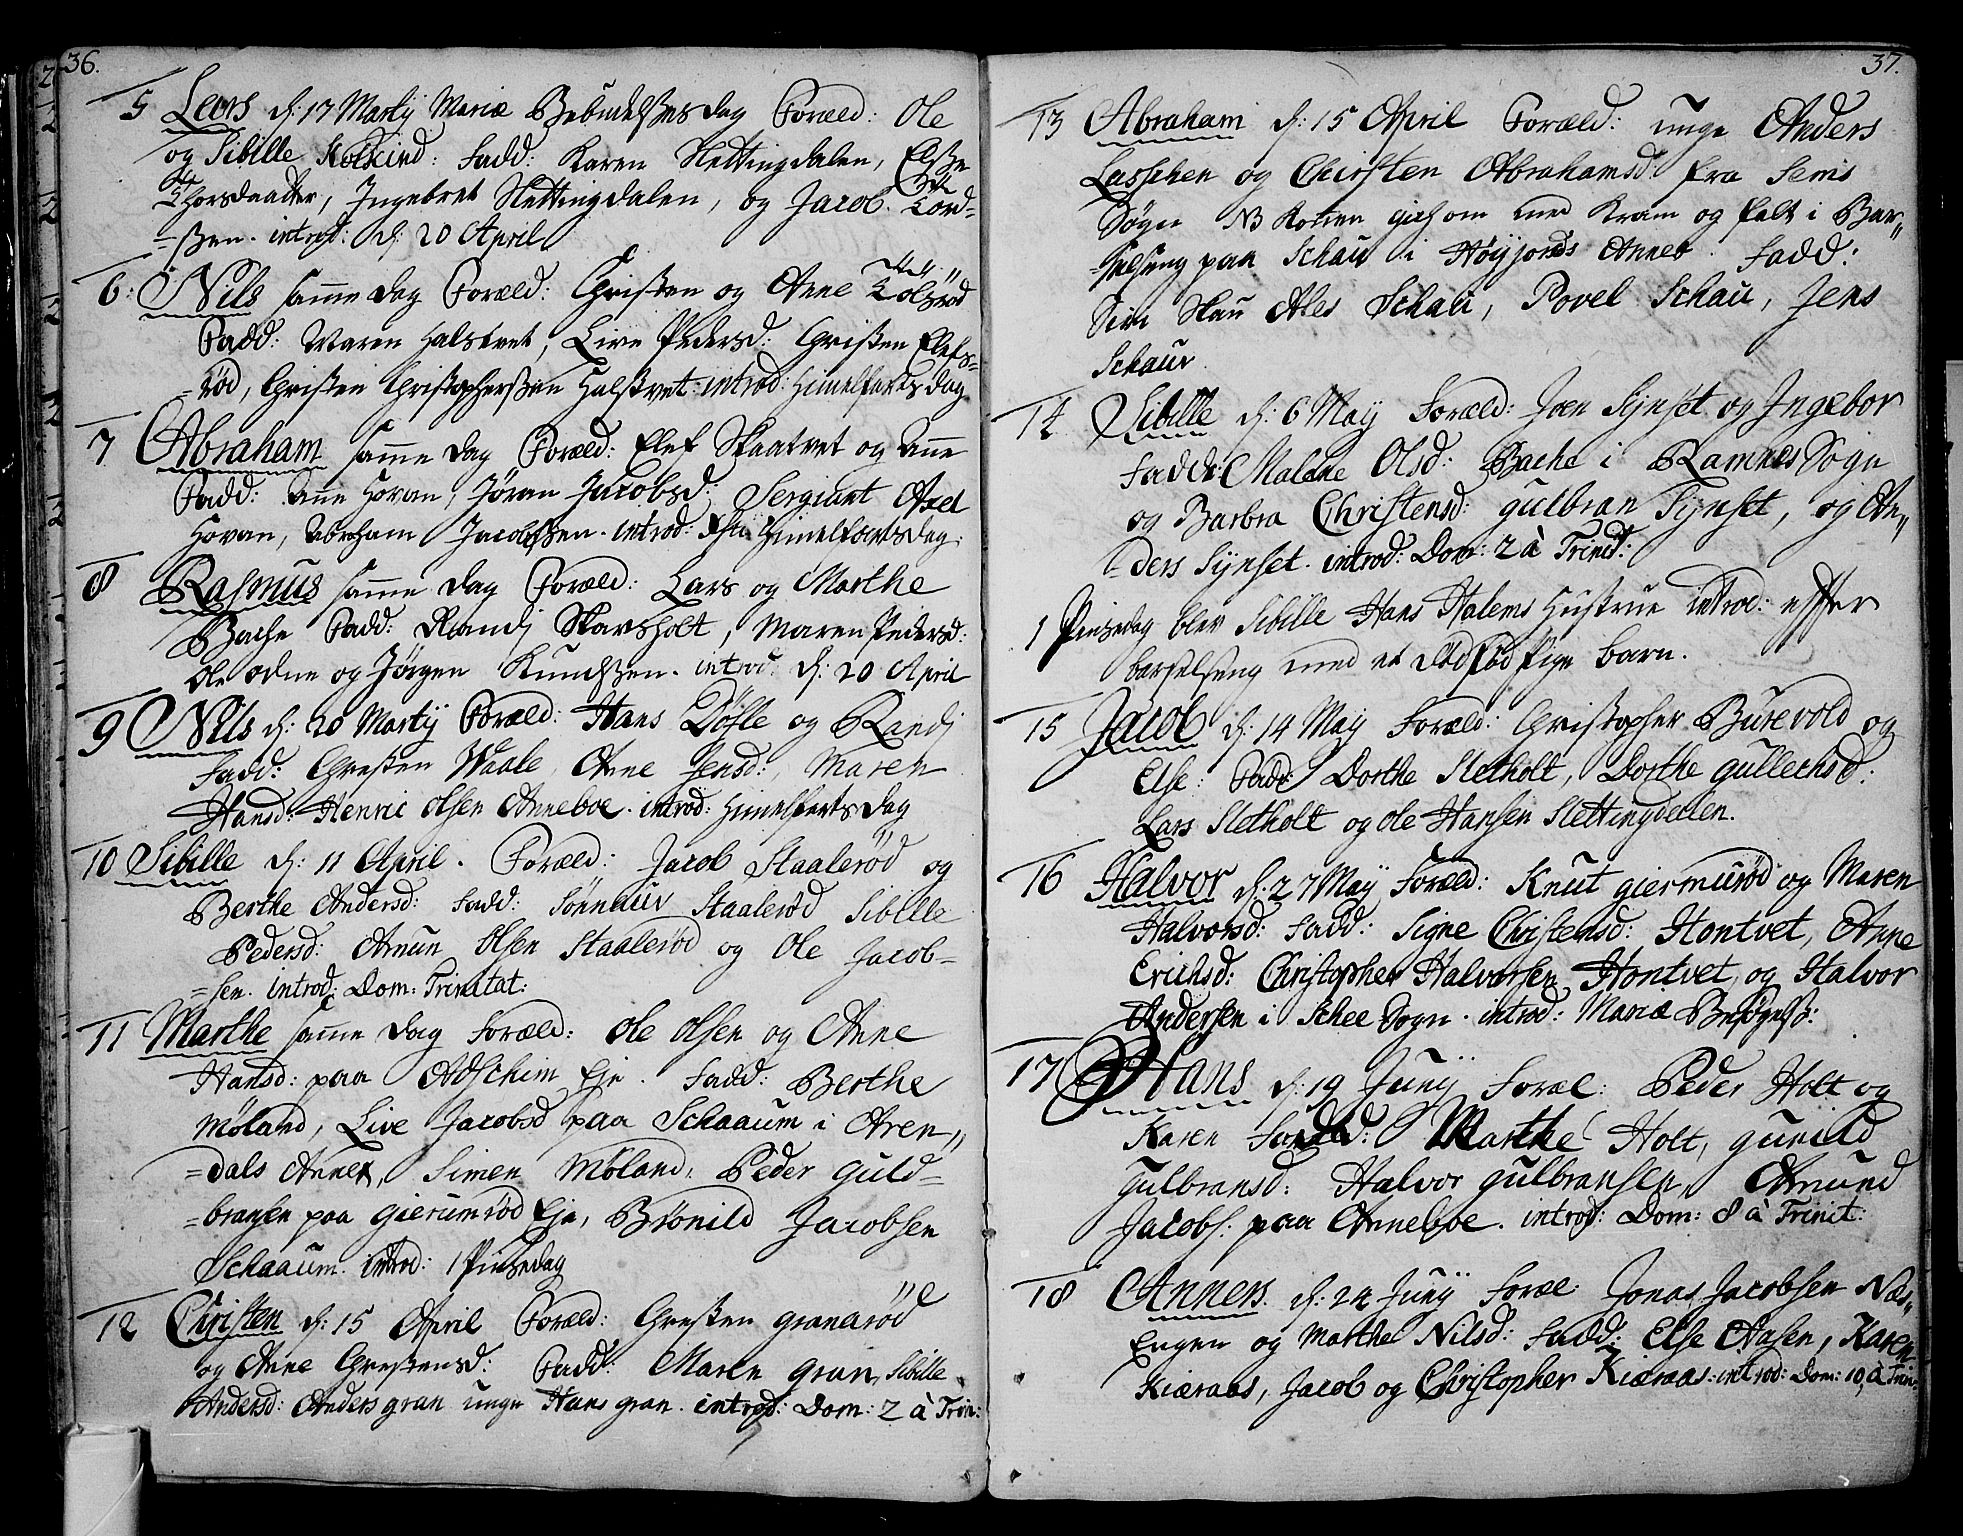 36.
5 Lars d: 17 Martij Mariæ Bebudelses dag Foræld: Ole
og Sibille Kolkind: Fadd: Karen Slettingdalen, Elsse
Thorsdaatter, Ingebret Slettingdalen, og Jacob Tord-
=ssen. introd: d: 20 April
6: Nils samme dag Foræld: Christen og Anne Tolsrød
Fadd: Maren Halstvet, Live Pedersd: Christen Elefs-
=rød, Christen Christophersen Halstvet introd: Himelfarts dag
7 Abraham samme dag Foræld: Elef Skaatvet og Anne
Fadd: Anne Hovan, Jøran Jacobsd: Sergiant Axel
Hovan, Abraham Jacobssen. introd: Himelfartsdag.
8 Rasmus samme dag Foræld: Lars og Marthe
Bache Fadd: Randj Skarsholt, Maren Pedersd:
Ole odne og Jørgen Knudssen. introd: d: 20 April
9 Nils d: 20 Martij Foræld: Hans Døfle og Randj
Fadd: Christen Waale, Anne Jensd:, Maren
Hansd: Henric Olsen Anneboe. introd: Himelfarts dag
10 Sibille d: 11 April. Foræld: Jacob Staalerød og
Berthe Andersd: Fadd: Sønnauv Staalerød Sibille
Pedersd: Amun Olsen Staalerød og Ole Jacob-
=sen. introd: Dom: Trinitat:
11 Marthe samme dag Foræld: Ole Olsen og Anne
Hansd: paa Adschim Eje. Fadd: Berthe
Møland, Live Jacobsd paa Schaaum i Aren,,
=dals Annex, Simen Møland, Peder Guld-
=bransen paa gierumrød Eje, Brønild Jacobsen
Schaaum. introd: 1 Pintzedag
12 Christen d: 15 April Foræld: Christen granarød
og Anne Christensd: Fadd: Maren gran, Sibille
Andersd: Anders gran unge Hans gran. introd: Dom: 2 à Trin:
37.
13 Abraham d: 15 April Foræld: unge Anders
Lasschen og Chirsten Abrahamsd: fra Sems
Sogn NB Konen gich om med Kram og falt i Bar,,
=selseng paa Schau i Høyjords Annex. Fadd:
Siri Skau Ales Schau, Povel Schau, Jens
Schauv
14 Sibille d: 6 May Foræld: Joen Synset og Ingebor
Fadd: Malene Olsd: Bache i Ramnes Sogn
og Barbra Christensd: gulbran Synset, og An,,
=ders Synset. introd: Dom: 2 à Trinit:
1 Pintzedag blev Sibille Hans Halems Hustrue introd: efter
barselseng med et dødfød Pige barn.
15 Jacob d: 14 May Foræld: Christopher Burevold og
Else: Fadd: Dorthe Sletholt, Dorthe gullechsd:
Lars Sletholt og Ole Hansen Slettingdelen.
16 Halvor d: 27 May Foræld: Knut giermurød og Maren
Halvorsd: Fadd: Signe Christensd: Hontvet, Anne
Erichsd: Christopher Halvorsen Hontvet, og Halvor
Andersen i Schee Sogn. introd: Mariæ Besøgels:
17 Hans d: 19 Junij Foræl: Peder Holt og
Karen Fadd: Marthe Holt, gunild
Gulbransd: Halvor gulbransen, Amund
Jacobs: paa Anneboe. introd: Dom: 8 à Trinit:
18 Anners d: 24 Junij Foræl: Jonas Jacobsen Næs,,
Engen og Marthe Nilsd: Fadd: Else Aasen, Karen
Kiæraas, Jacob og Christopher Kiæraas: introd: Dom: 10 à Trin: